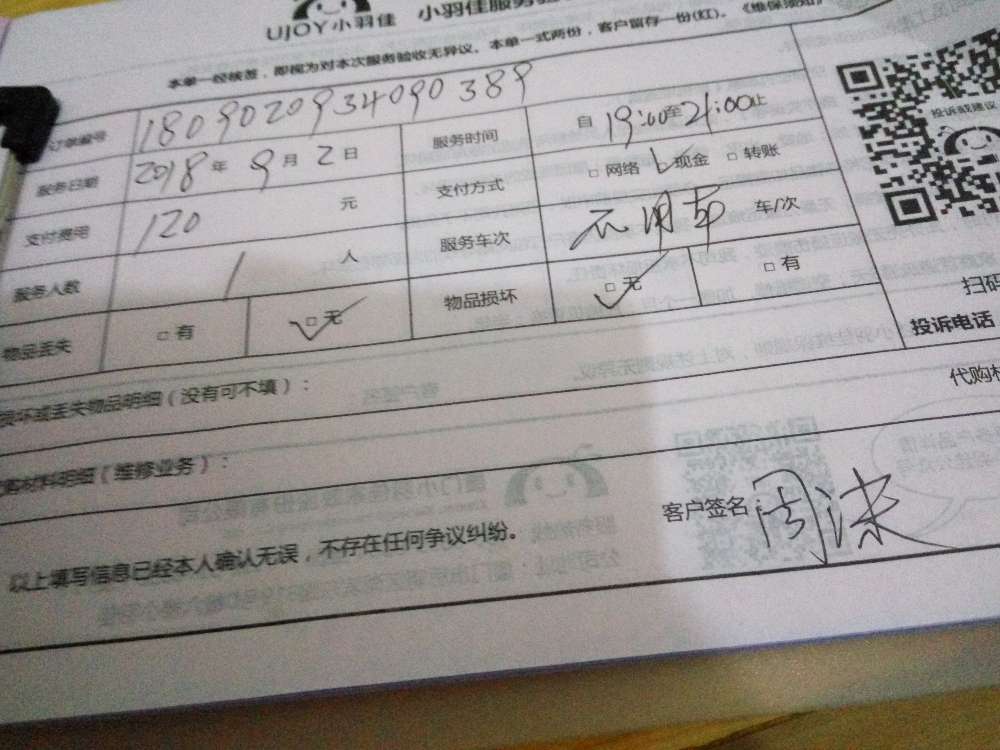 UJOY小羽佳 小羽佳服务
本单一经核签，即视为对本次服务验收无异议。本单一式两份，客户留存一份(红)。《维保须知》
订单编号 1809020934090389 服务时间 自 19:00 至 21:00 止
服务日期 2018 年 9 月 2 日 支付方式 □网络 □现金 □转账
支付费用 120 元 服务车次 不用车 车/次
服务人数 1 人 物品损坏 □无 □有
物品丢失 □有 □无
投诉或建议
扫码
投诉电话
损坏或丢失物品明细（没有可不填）：
代购材
材料明细（维修业务）：
以上填写信息已经本人确认无误，不存在任何争议纠纷。
客户签名 周